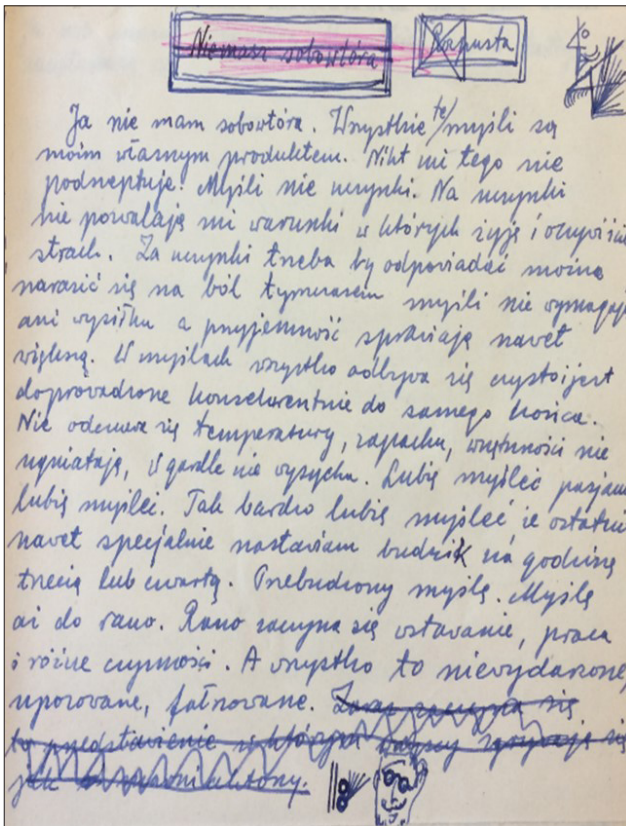 Niemasz sobowtóra
Kapusta
Ja nie mam sobowtóra. Wszystkie te/myśli są
moim własnym produktem. Nikt mi tego nie
podszeptuje! Myśli nie uczynki. Na uczynki
nie pozwalają mi warunki w których żyję i oczywiście
strach. Za uczynki trzeba by odpowiadać można
narazić się na ból tymczasem myśli nie wymagają
ani wysiłku a przyjemność sprawiają nawet
większą. W myślach wszystko odbywa się czysto i jest
doprowadzone konsekwentnie do samego końca.
Nie odczuwa się temperatury, zapachu, wnętrzności nie
ugniatają, w gardle nie wysycha. Lubię myśleć pasjami
lubię myśleć. Tak bardzo lubię myśleć że ostatnio
nawet specjalnie nastawiam budzik na godzinę
trzecią lub czwartą. Przebudzony myślę. Myślę
aż do rana. Rano zaczyna się wstawanie, praca
i różne czynności. A wszystko to niewydarzone,
upozorowane, fałszowane. Zaraz zaczyna się
to przedstawienie w którym wszyscy zgrywają się
jak